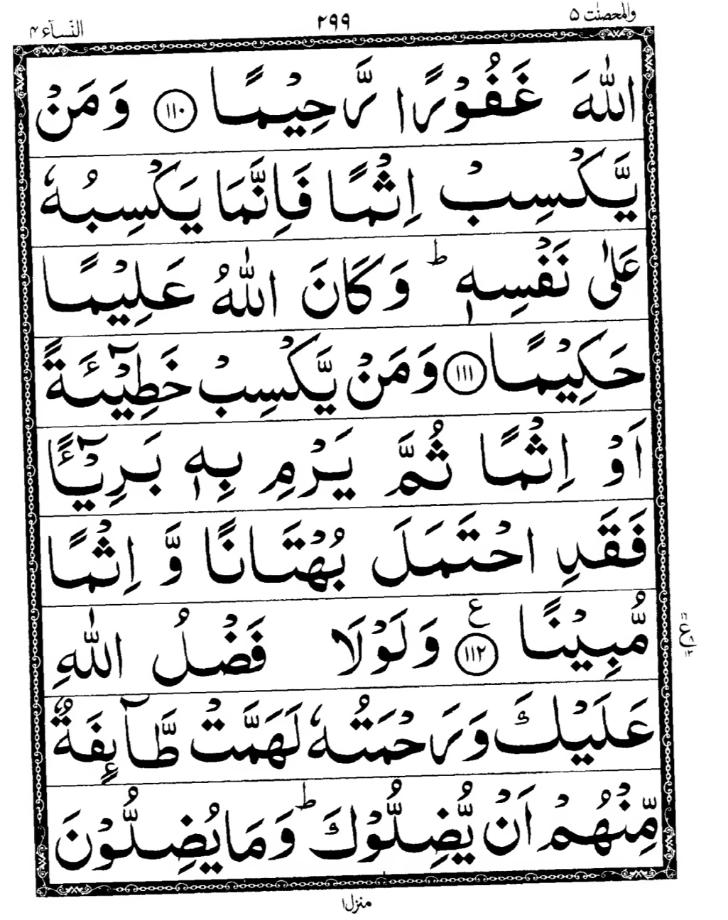 والمحصنت ۵ ۲۹۹ النسآء ۴
اللّٰهَ غَفُوْرًا رَّحِیْمًا ﴿۱۱۰﴾ وَ مَنْ
یَّكْسِبْ اِثْمًا فَاِنَّمَا یَكْسِبُهٗ
عَلٰی نَفْسِهٖ ؕ وَ كَانَ اللّٰهُ عَلِیْمًا
حَكِیْمًا ﴿۱۱۱﴾ وَ مَنْ یَّكْسِبْ خَطِیْٓئَةً
اَوْ اِثْمًا ثُمَّ یَرْمِ بِهٖ بَرِیْٓــًٔا
فَقَدِ احْتَمَلَ بُهْتَانًا وَّ اِثْمًا
مُّبِیْنًا ﴿۱۱۲﴾ ع وَ لَوْلَا فَضْلُ اللّٰهِ
عَلَیْكَ وَ رَحْمَتُهٗ لَهَمَّتْ طَّآىِٕفَةٌ
مِّنْهُمْ اَنْ یُّضِلُّوْكَ ؕ وَ مَا یُضِلُّوْنَ
منزل۱